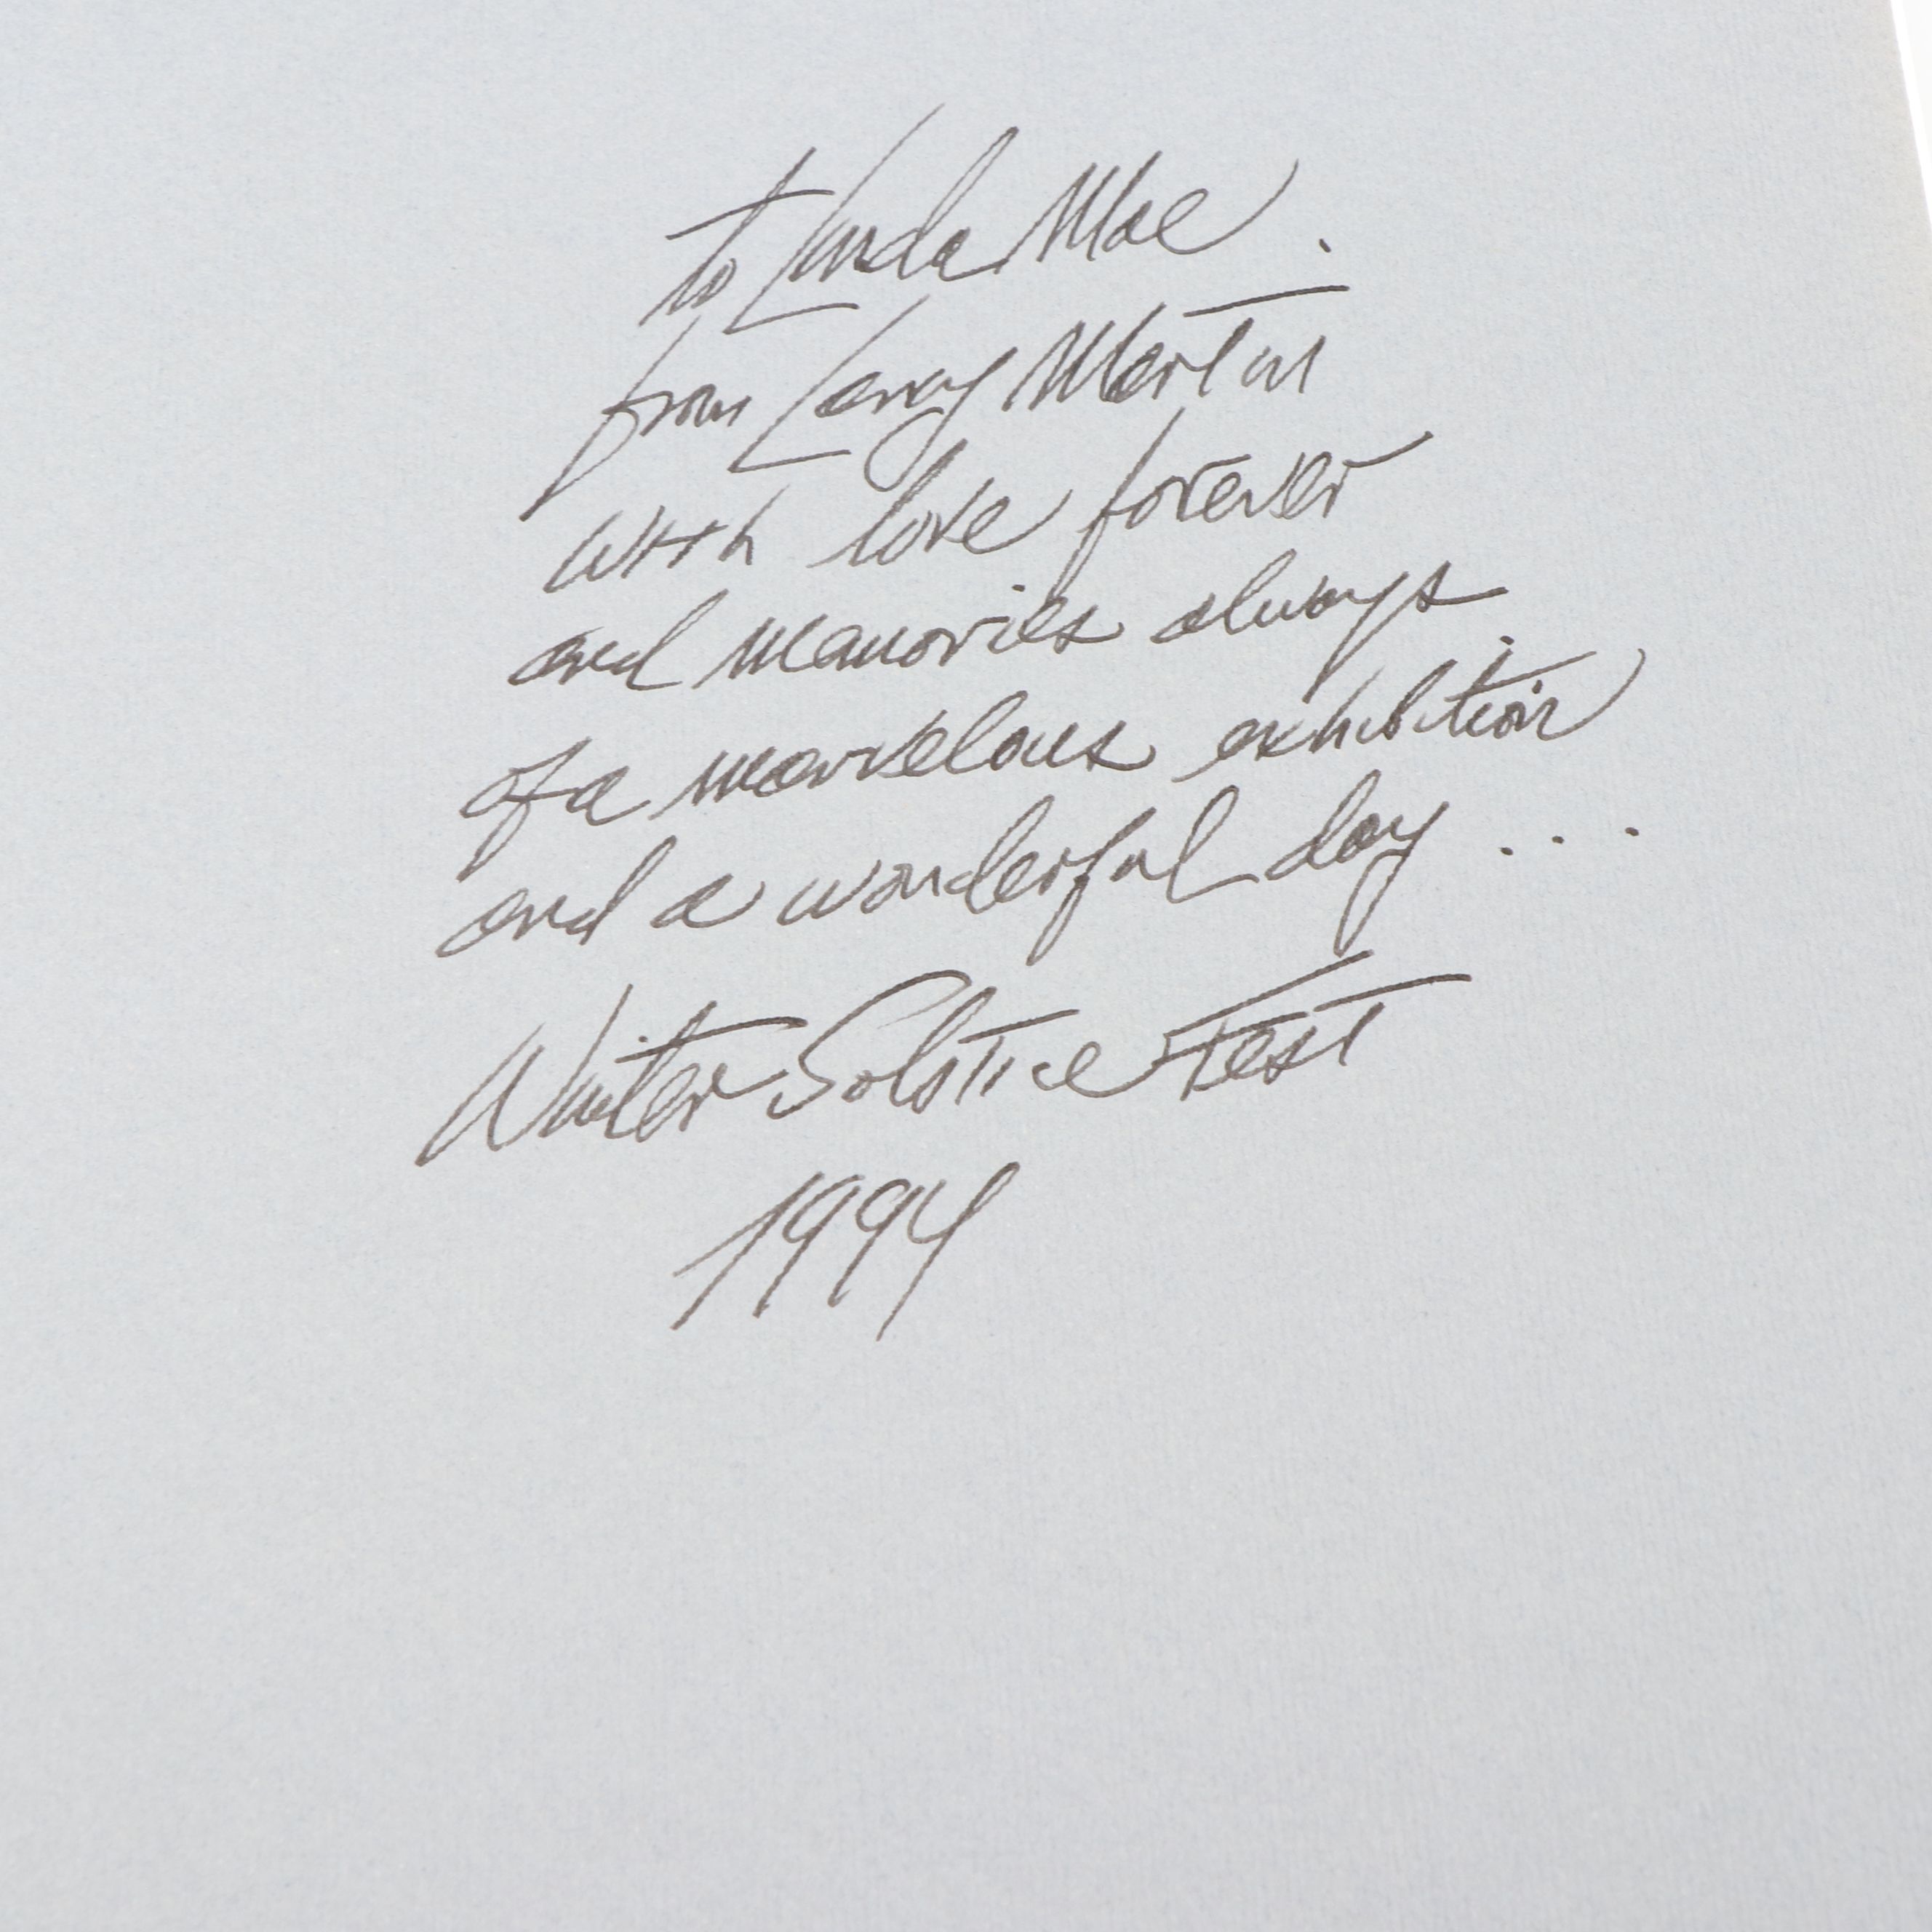 to Linda Mae
from Larry Martin
with love forever
and memories always
of a marvelous exhibition
and a wonderful day ...
Winter Solstice Fest
1994